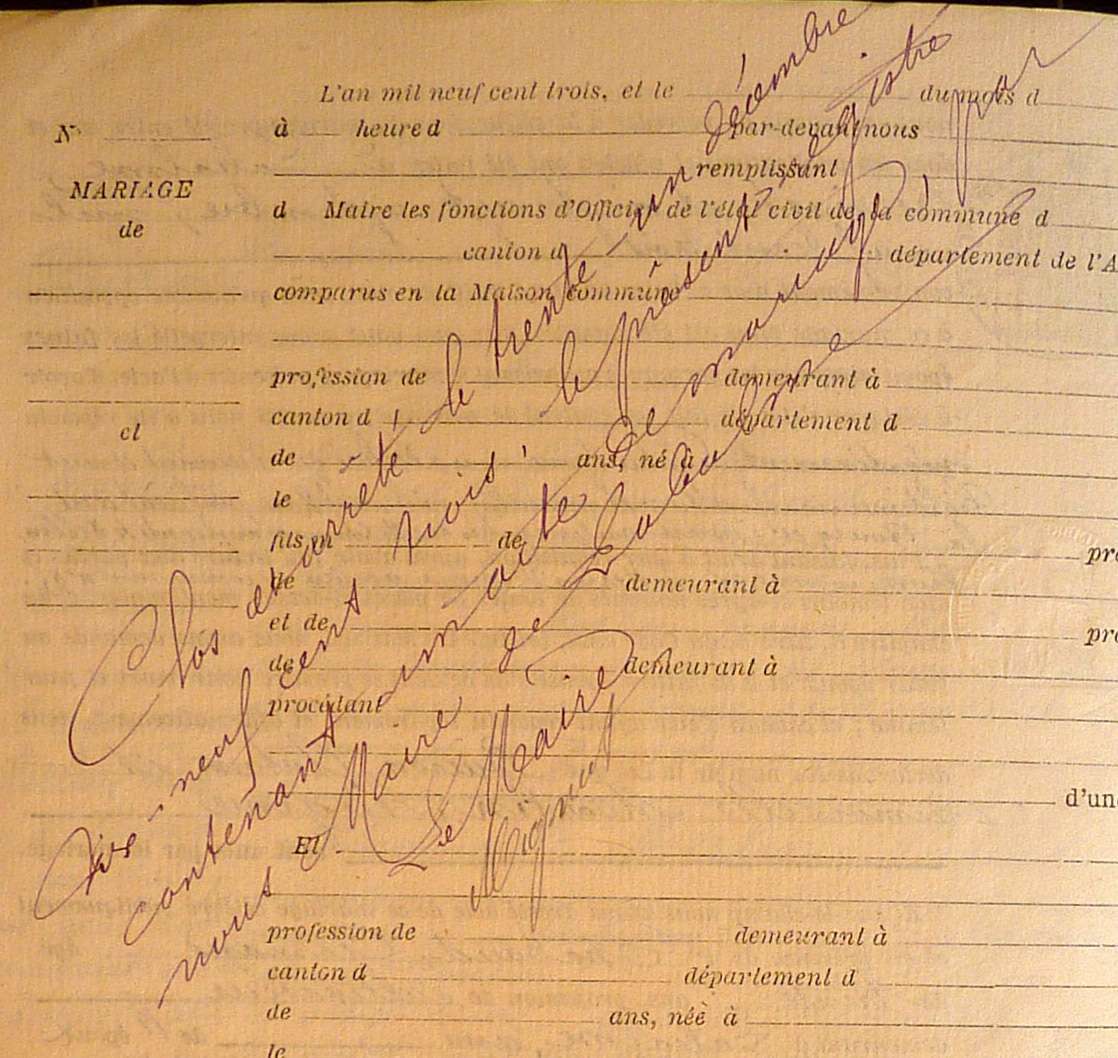 L'an mil neuf cent trois, et le du mois d
N°
à heure d par-devant nous
remplissant
MARIAGE
de
d Maire les fonctions d'Officier de l'état civil de la commune d
canton d département de l'A
comparus en la Maison commune
profession de demeurant à
canton d département d
et
de ans, né à
le
fils d de pro
de demeurant à
et de pro
de demeurant à
procédant
d'une
Et
profession de demeurant à
canton d département d
de ans, née à
le
Clos et arrêté le trente-un décembre
dix-neuf cent trois le présent registre
contenant un acte de mariage, par
nous Maire de Labalme
Le Maire